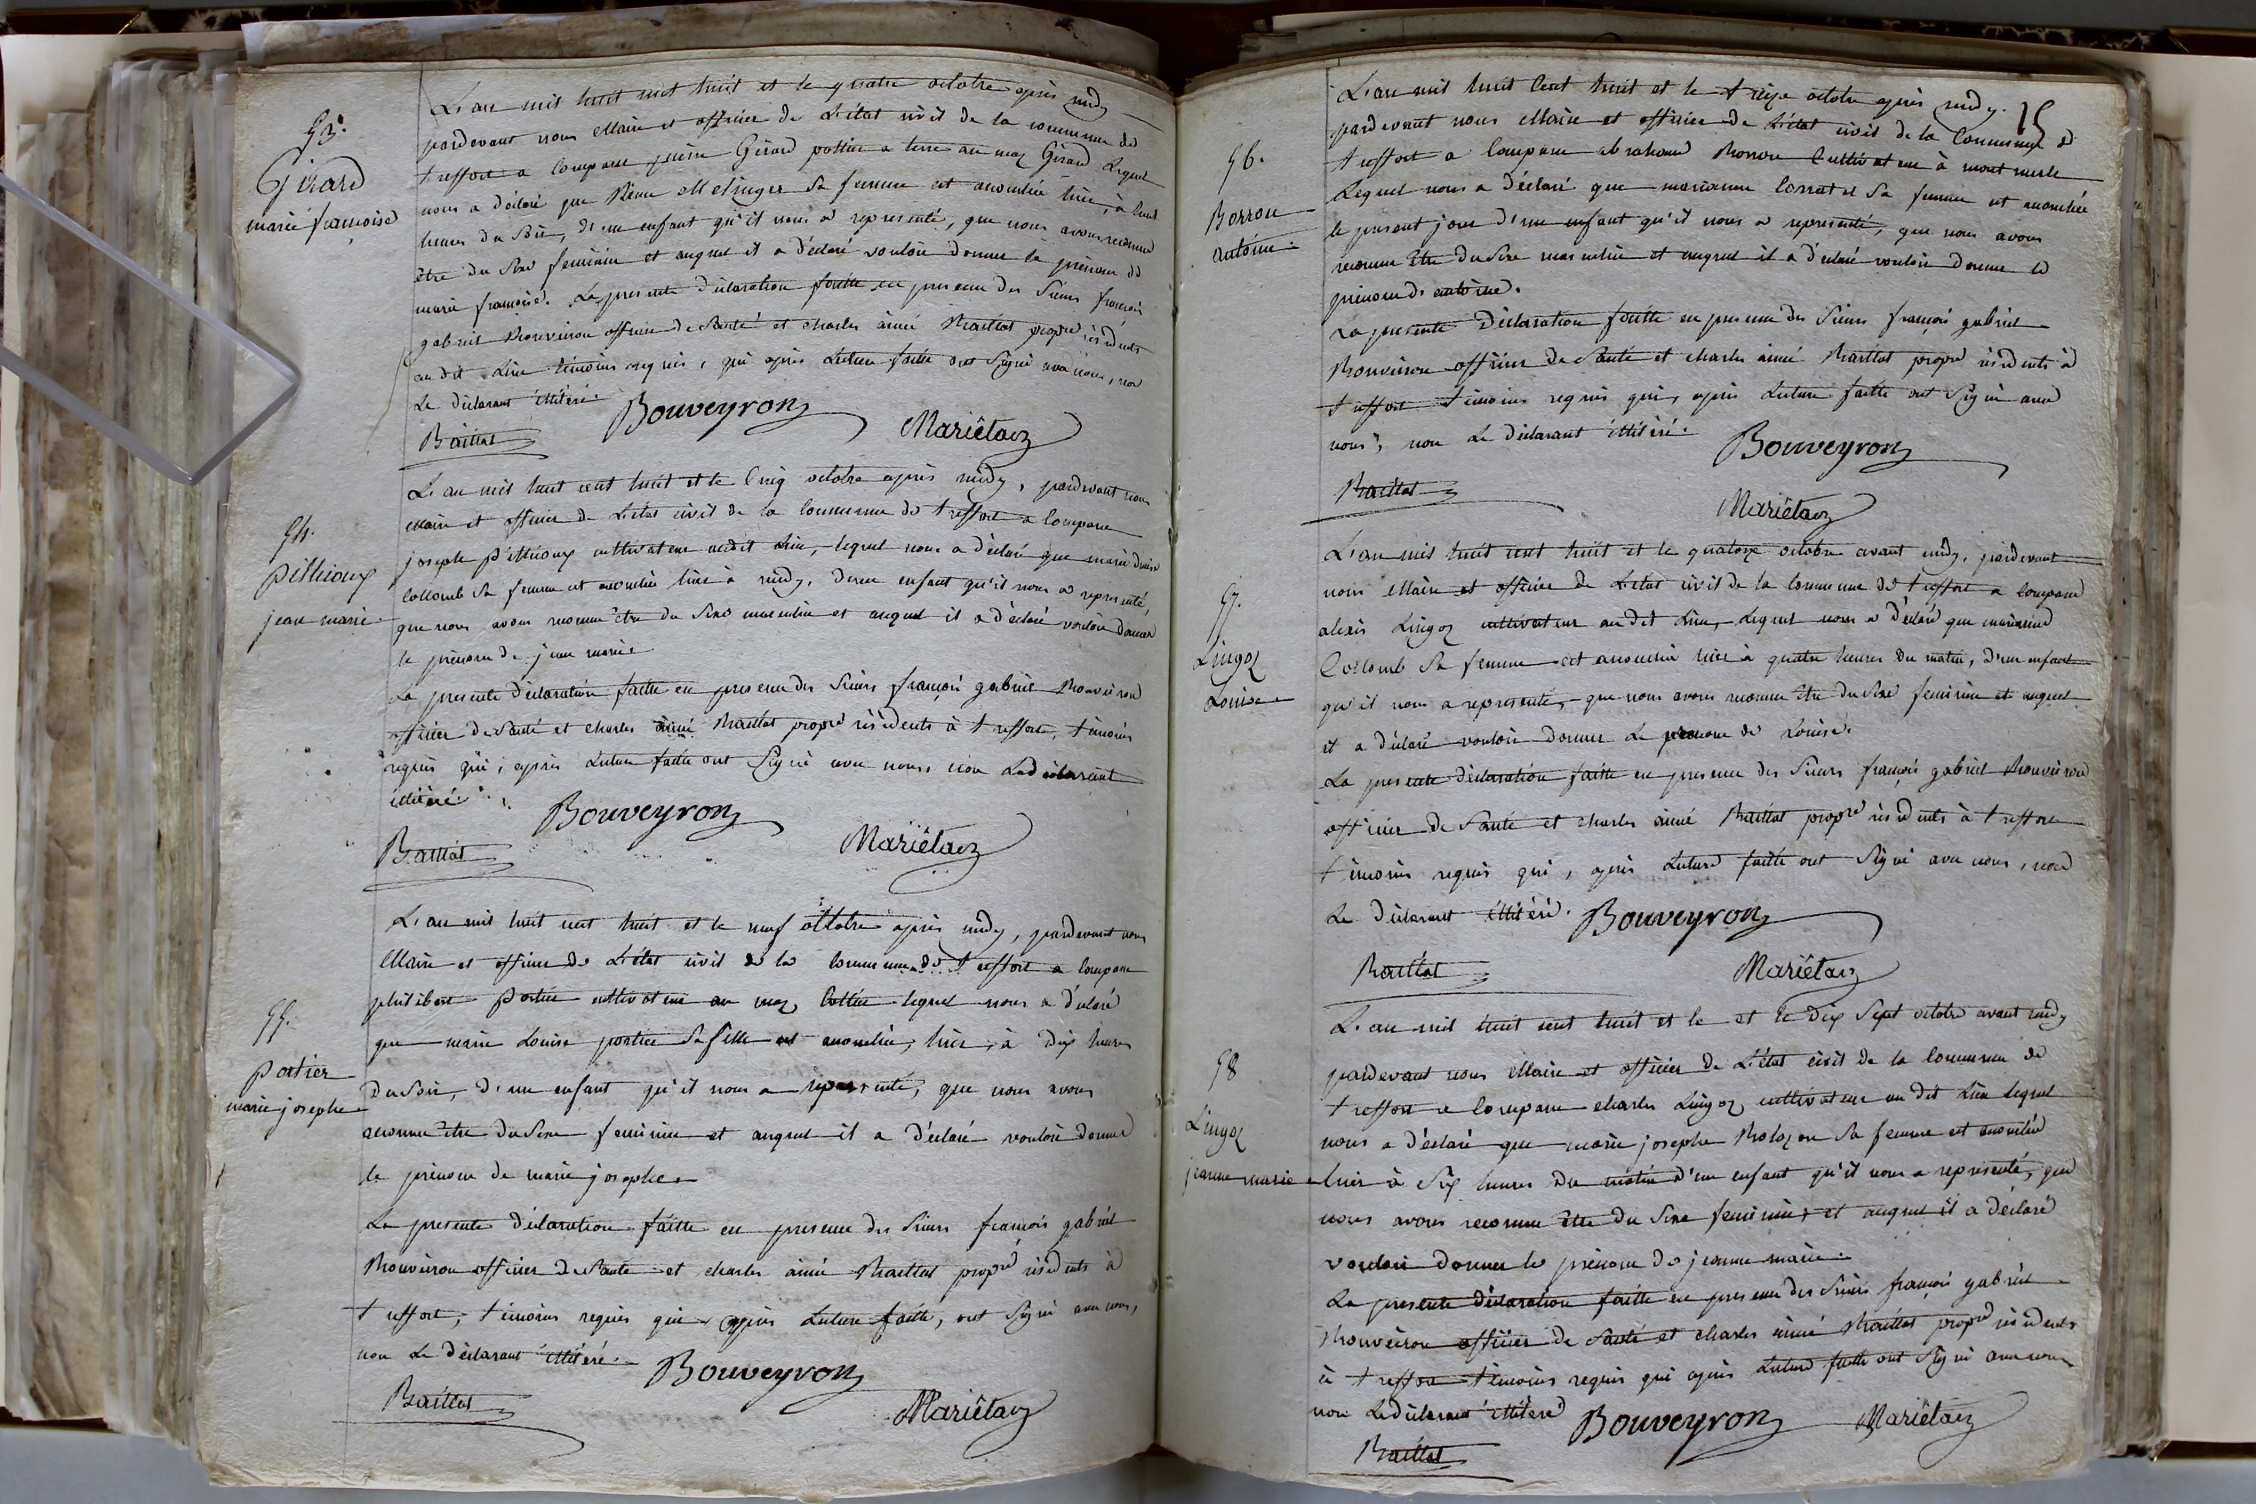 53.
Girard
marie françoise
L'an mil huit cent huit et le quatre octobre après midy
pardevant nous Maire et officier de L'état civil de la commune de
treffort a comparu pierre Girard pottier a terre au maz Girard Lequel
nous a déclaré que Reine Metinger sa femme est accouchée hier, à huit
heures du Soir, d'un enfant qu'il nous a representé, que nous avons reconnu
être du Sexe feminin et auquel il a déclaré vouloir donner le prénom de
marie françoise. La presente déclaration faitte en presence des Sieurs françois
gabriel Bouveiron officier de Santé et charles aimé Baillat propre résidents
au dit Lieu témoins requis, qui après Lecture faitte ont Signé avec nous, non
Le déclarant illitéré.
Baillat Bouveyron Mariëtan
54.
pillioux
jean marie
L'an mil huit cent huit et le Cinq octobre après midy, pardevant nous
Maire et officier de L'état civil de la Commune de treffort a Comparu
joseph pillioux cultivateur audit Lieu, lequel nous a déclaré que marie
Collomb Sa femme est accouchée hier à midy, d'un enfant qu'il nous a representé,
que nous avons reconnu être du Sexe masculin et auquel il a déclaré vouloir donner
le prénom de jean marie
La presente déclaration faitte en presence des Sieurs françois gabriel Bouveiron
officier de Santé et charles aimé Baillat propre résidents à treffort, témoins
requis qui, après Lecture faitte ont Signé avec nous non Le déclarant
illitéré.
Baillat Bouveyron Mariëtan
55.
portier
marie josephe
L'an mil huit cent huit et le neuf octobre après midy, pardevant nous
Maire et officier de L'état civil de la Commune de treffort a comparu
philibert portier cultivateur au maz lequel nous a déclaré
que marie Louise portier Sa fille est accouchée, hier, à Dix heures
du Soir, d'un enfant qu'il nous a representé, que nous avons
reconnu être du Sexe feminin et auquel il a déclaré vouloir donner
le prénom de marie josephe.
La presente déclaration faitte en presence des Sieurs françois gabriel
Bouveiron officier de Santé et charles aimé Baillat propre résidents à
treffort, témoins requis qui après Lecture faitte, ont Signé avec nous,
non Le déclarant illitéré.
Baillat Bouveyron Mariëtan
15
56.
Borron
antoine
L'an mil huit Cent huit et le treize octobre après midy.
pardevant nous Maire et officier de L'état civil de la Commune de
treffort a Comparu abraham Borron Cultivateur à mont merle
Lequel nous a déclaré que marianne Sa femme est accouchée
le present jour d'un enfant qu'il nous a representé, que nous avons
reconnu être du Sexe masculin et auquel il a déclaré vouloir donner le
prénom de antoine.
La presente Déclaration faitte en presence des Sieurs françois gabriel
Bouveiron officier de Santé et charles aimé Baillat propre résidents à
treffort témoins requis qui, après Lecture faitte ont Signé avec
nous, non Le déclarant illitéré.
Bouveyron
Baillat
Mariëtan
57.
Lingoz
Louise
L'an mil huit cent huit et le quatorze octobre avant midy, pardevant
nous Maire et officier de L'état civil de la Commune de treffort a comparu
alexis Lingoz cultivateur au dit Lieu, Lequel nous a déclaré que
Collomb Sa femme est accouchée hier à quatre heures du matin, d'un enfant
qu'il nous a representé, que nous avons reconnu être du Sexe feminin et auquel
il a déclaré vouloir donner Le prénom de Louise.
La presente déclaration faitte en presence des Sieurs françois gabriel Bouveiron
officier de Santé et charles aimé Baillat propre résidents à treffort
témoins requis qui, après Lecture faitte ont Signé avec nous, non
Le déclarant illitéré. Bouveyron
Baillat Mariëtan
58
Lingoz
jeanne marie
L'an mil huit cent huit et le et le Dix Sept octobre avant midy
pardevant nous Maire et officier de L'état civil de la Commune de
treffort a Comparu charles Lingoz cultivateur au dit Lieu lequel
nous a déclaré que marie josephe Sa femme est accouchée
hier à Six heures du matin d'un enfant qu'il nous a representé, que
nous avons reconnu être du Sexe feminin, et auquel il a déclaré
vouloir donner le prénom de jeanne marie.
La presente déclaration faitte en presence des Sieurs françois gabriel
Bouveiron officier de Santé et charles aimé Baillat propre résidents
à treffort témoins requis qui après Lecture faitte ont Signé avec nous
non Le déclarant illitéré Bouveyron Mariëtan
Baillat